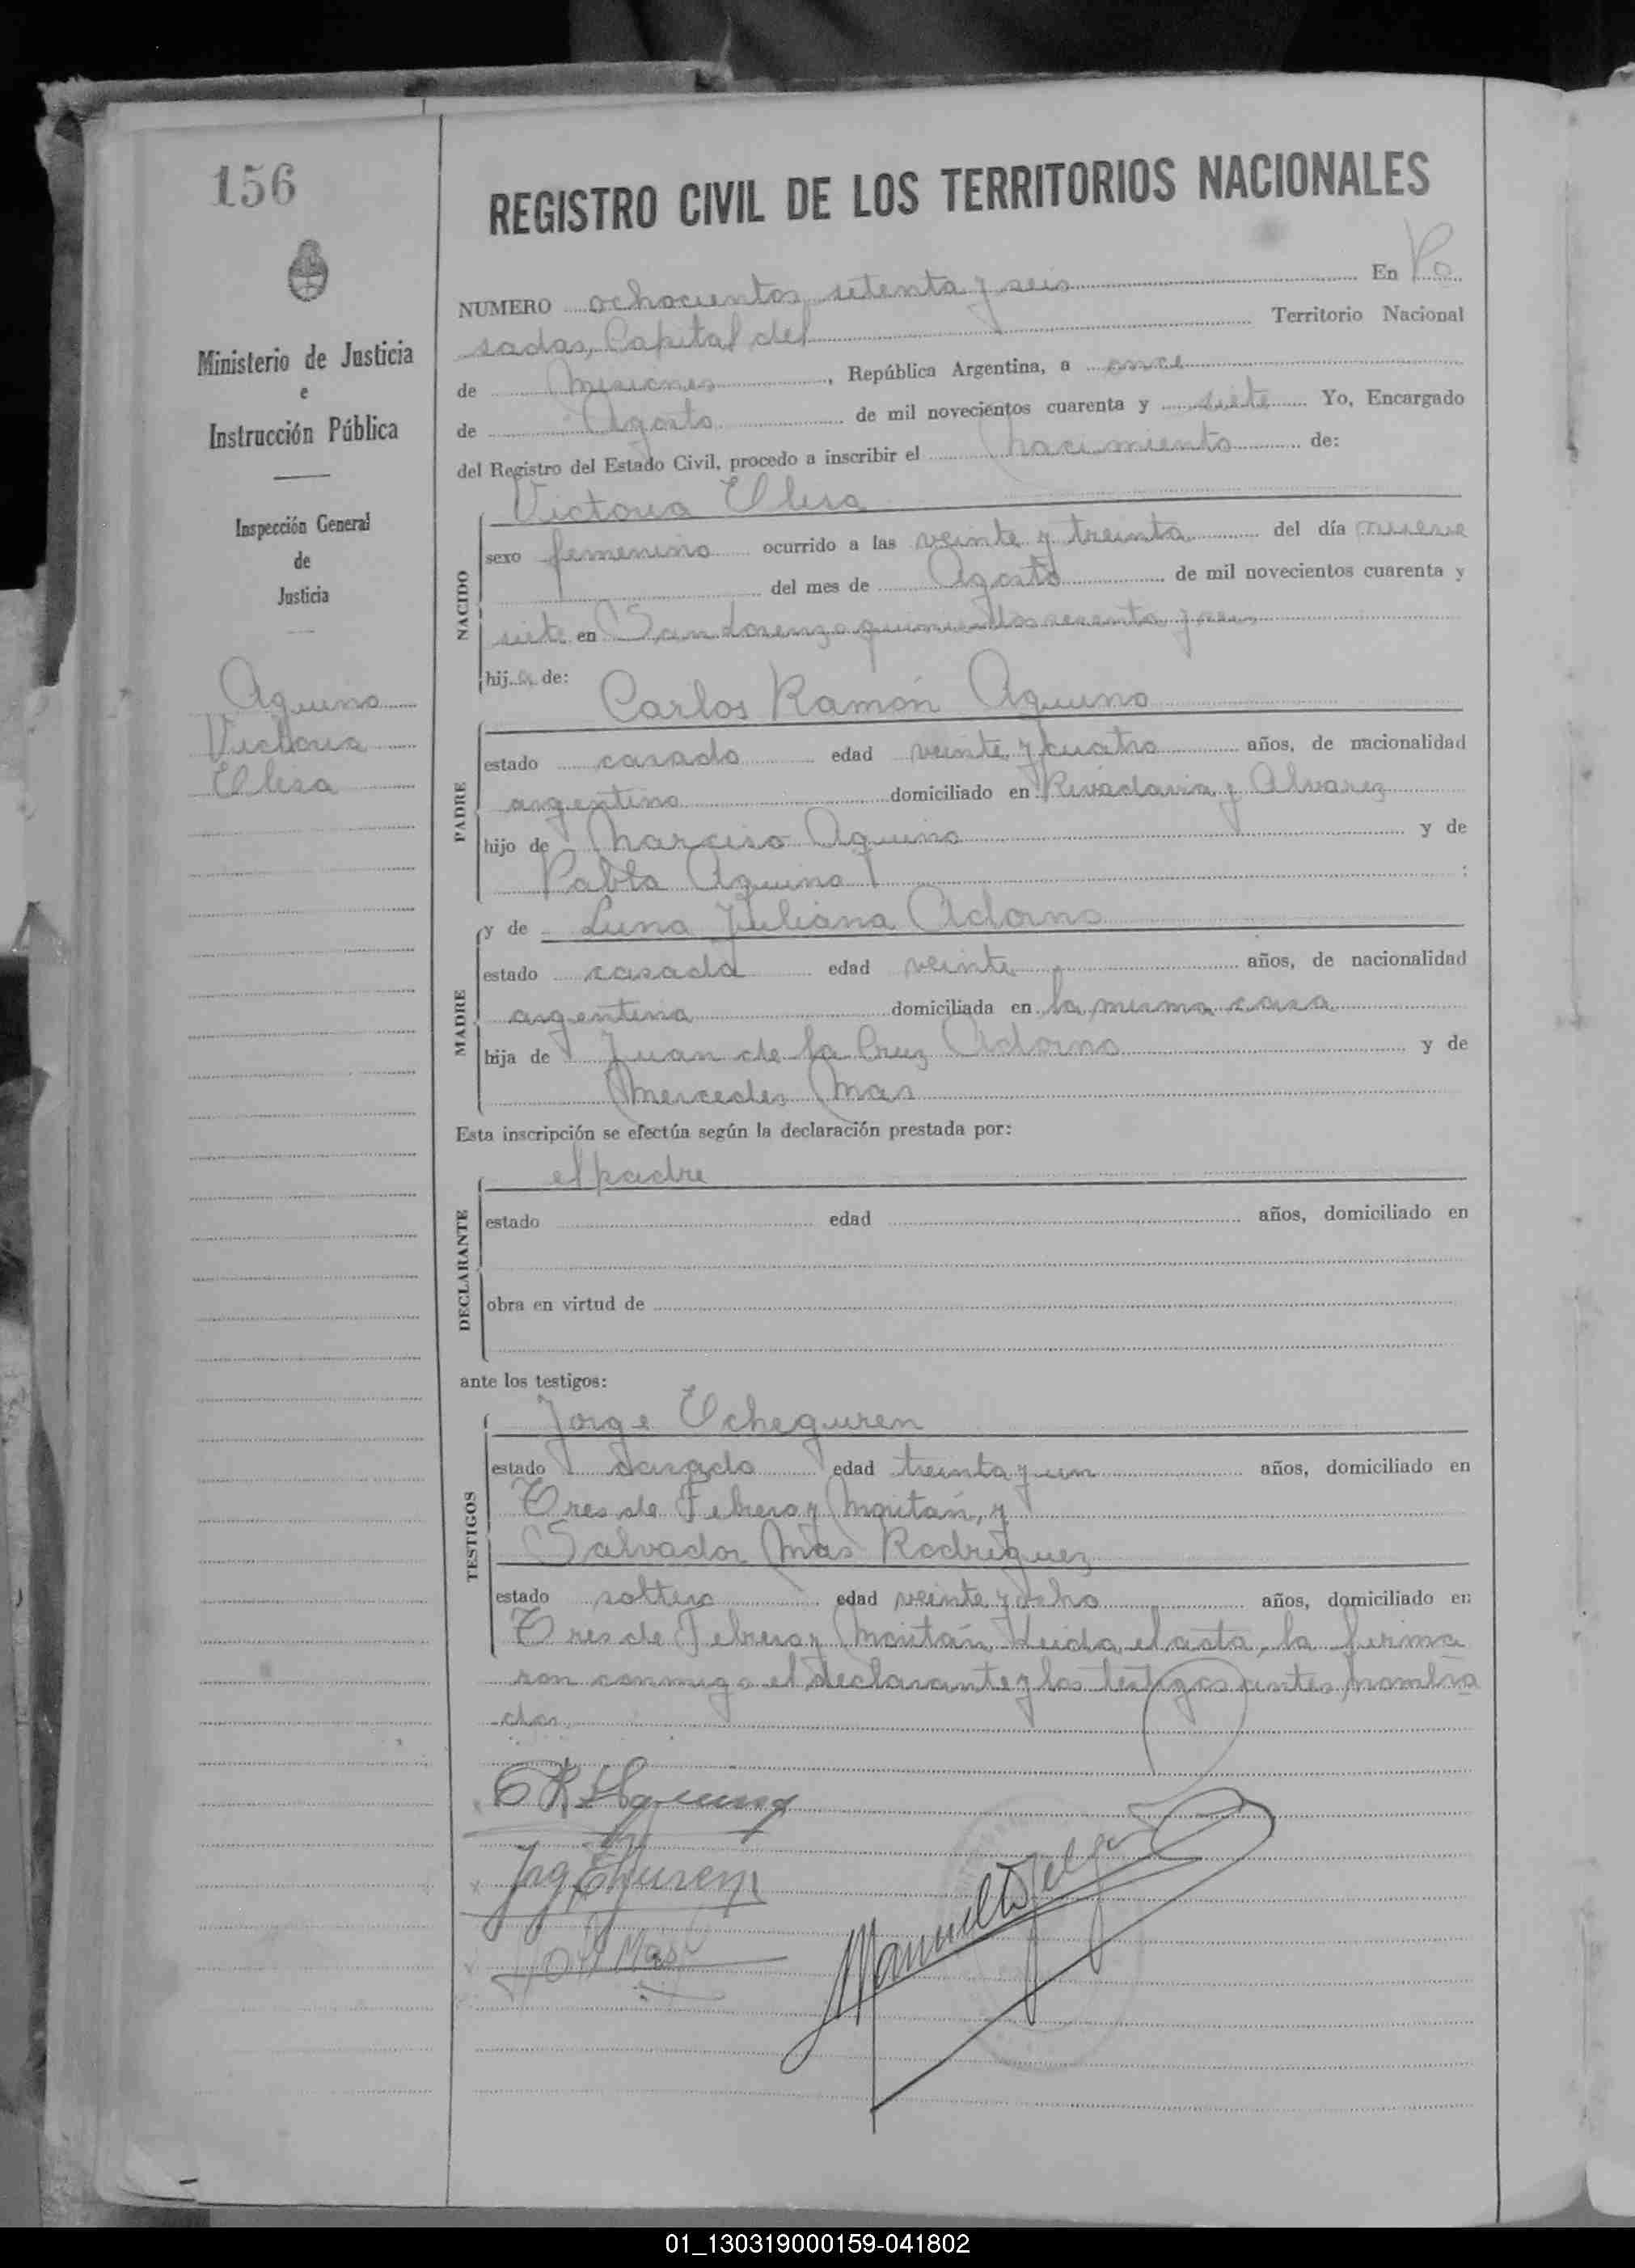 156
Ministerio de Justicia
e
Instrucción Pública
Inspección General
de
Justicia
Aquino
Victoria
Elisa
REGISTRO CIVIL DE LOS TERRITORIOS NACIONALES
NUMERO ochocientos setenta y seis En Po
sadas, Capital del Territorio Nacional
de Misiones, República Argentina, a once
de Agosto de mil novecientos cuarenta y siete Yo, Encargado
del Registro del Estado Civil, procedo a inscribir el nacimiento de:
Victoria Elisa
NACIDO
sexo femenino ocurrido a las veinte y treinta del día nueve
del mes de Agosto de mil novecientos cuarenta y
siete en San Lorenzo quinientos sesenta y seis
hija de:
Carlos Ramón Aquino
PADRE
estado casado edad veinte y cuatro años, de nacionalidad
argentino domiciliado en Rivadavia y Alvarez
hijo de Narciso Aquino y de
Pabla Aquino ;
MADRE
y de Luna Juliana Adorno
estado casada edad veinte años, de nacionalidad
argentina domiciliada en la misma casa
hija de Juan de la Cruz Adorno y de
Mercedes Mas
Esta inscripción se efectúa según la declaración prestada por:
DECLARANTE
el padre
estado edad años, domiciliado en
obra en virtud de
ante los testigos:
TESTIGOS
Jorge Echeguren
estado casado edad treinta y un años, domiciliado en
Tres de Febrero y Moritán, y
Salvador Mas Rodriguez
estado soltero edad veinte y ocho años, domiciliado en
Tres de Febrero y Moritán. Leida el acta, la firma
ron conmigo el declarante y los testigos antes nombra
dos.
C R Aquino
Mas
01_130319000159-041802